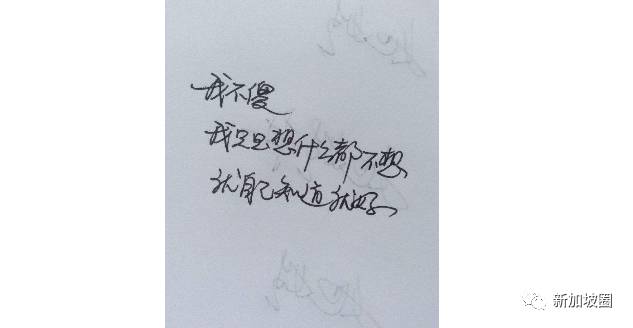 我不傻
我只是想什么都不想
就自己知道就好
新加坡圈